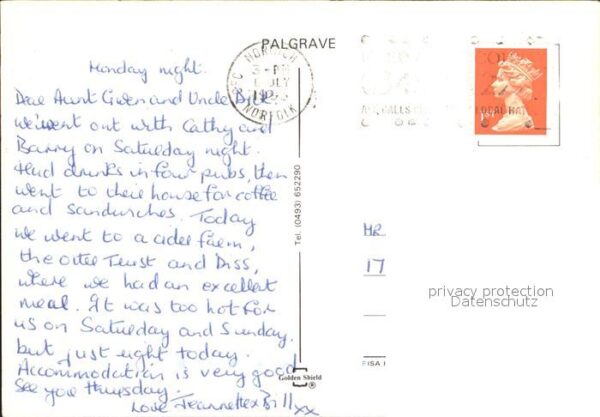 PALGRAVE
Monday night.
Dear Aunt Gwen and Uncle
We went out with Cathy and
Barry on Saturday night.
Had drinks in four pubs, then
went to their house for coffee
and sandwiches. Today
we went to a cider farm,
the otter Trust and Diss,
where we had an excellent
meal. It was too hot for
us on Saturday and Sunday,
but just right today.
Accommodation is very good
See you Thursday.
Love Jeannette x Bill xx
NORWICH
JLY
NORFOLK
Tel. (0493) 652290
Golden Shield
®
MR
17
privacy protection
Datenschutz